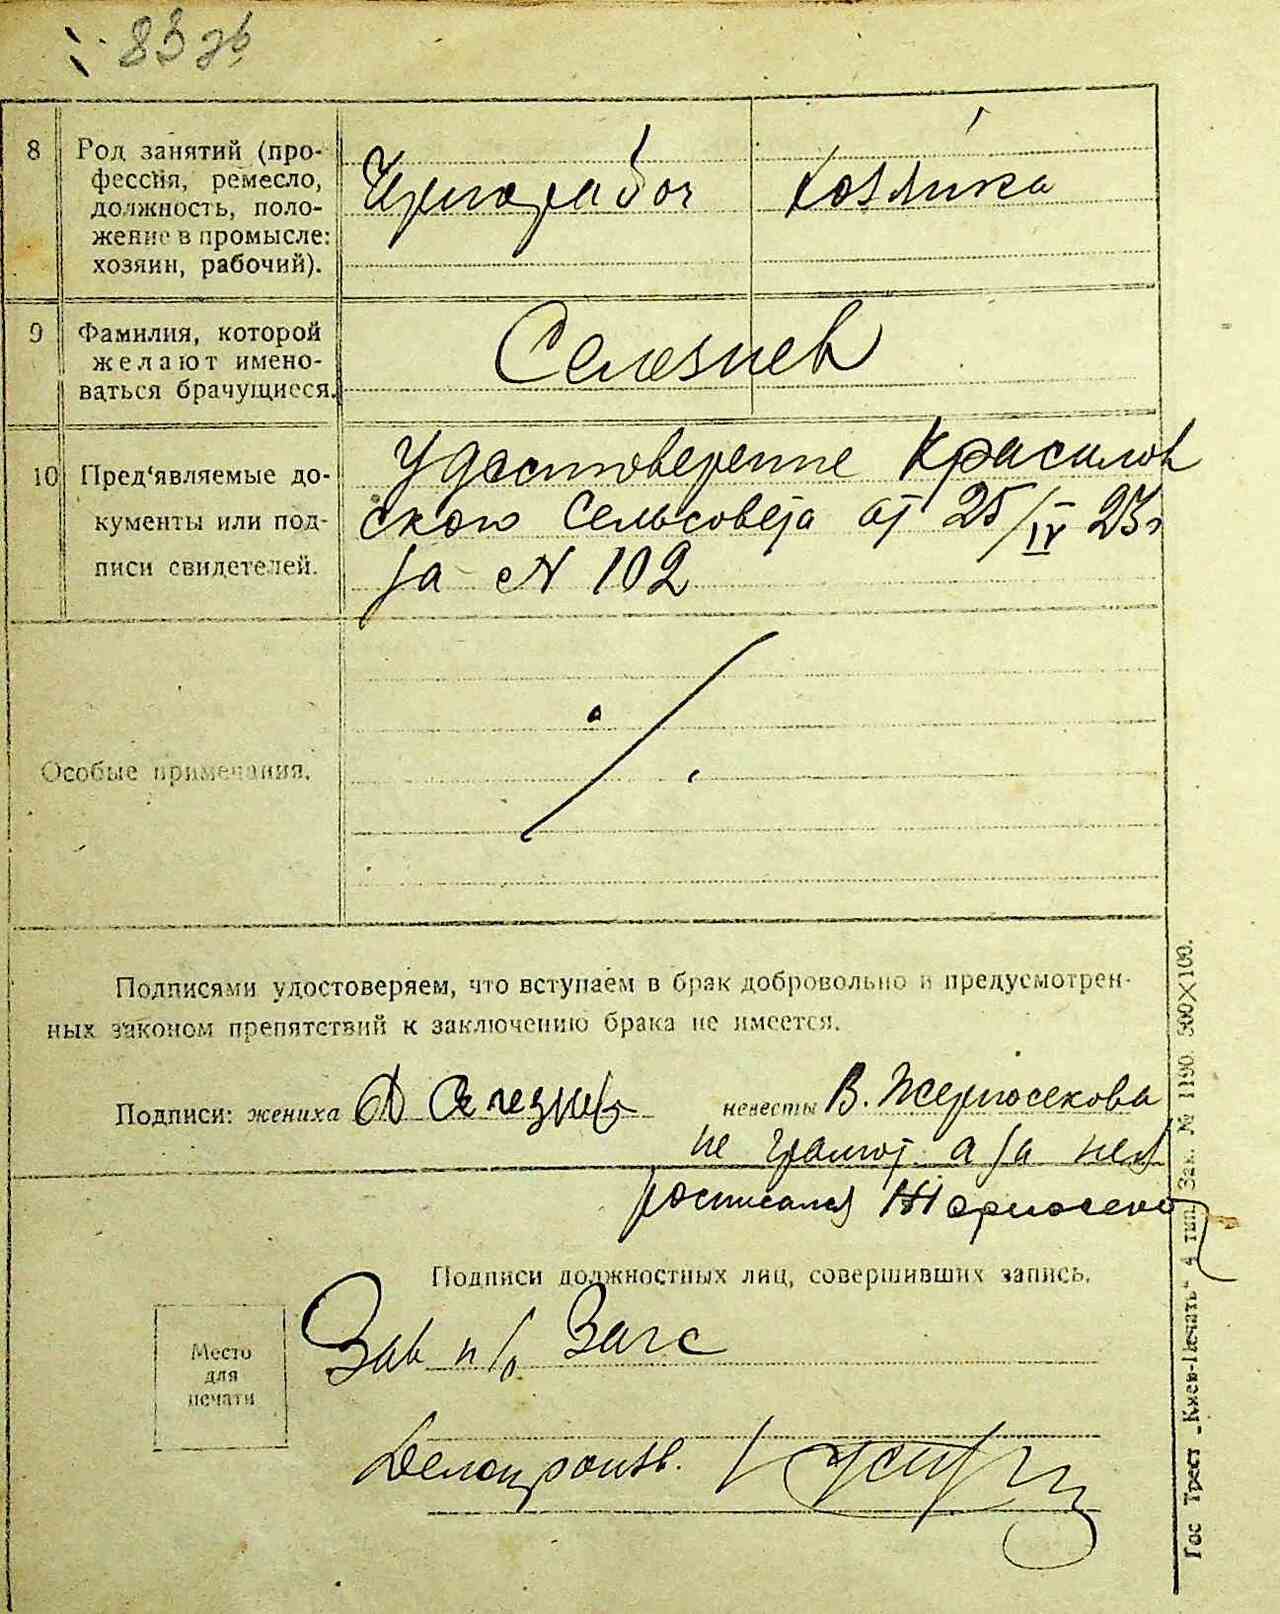 83 зв
8 Род занятий (про-
фессия, ремесло,
должность, поло-
жение в промысле:
хозяин, рабочий).
Чернорабоч Хозяйка
9 Фамилия, которой
желают имено-
ваться брачущиеся.
Селезнев
10 Пред'являемые до-
кументы или под-
писи свидетелей.
Удостоверение Красилов
ского Сельсовета от 25/IV 23г
за № 102
Особые примечания.
Подписями удостоверяем, что вступаем в брак добровольно и предусмотрен-
ных законом препятствий к заключению брака не имеется.
Подписи: жениха Селезнев невесты В. Жерносекова
не грамот. а за нея
росписался Жерносеков
Подписи должностных лиц, совершивших запись.
Зав п/о Загс
Место
для
печати
Делопроизв.
Гос Трест „Киев-Печать“ 4 тип. Зак. № 1190. 300X100.